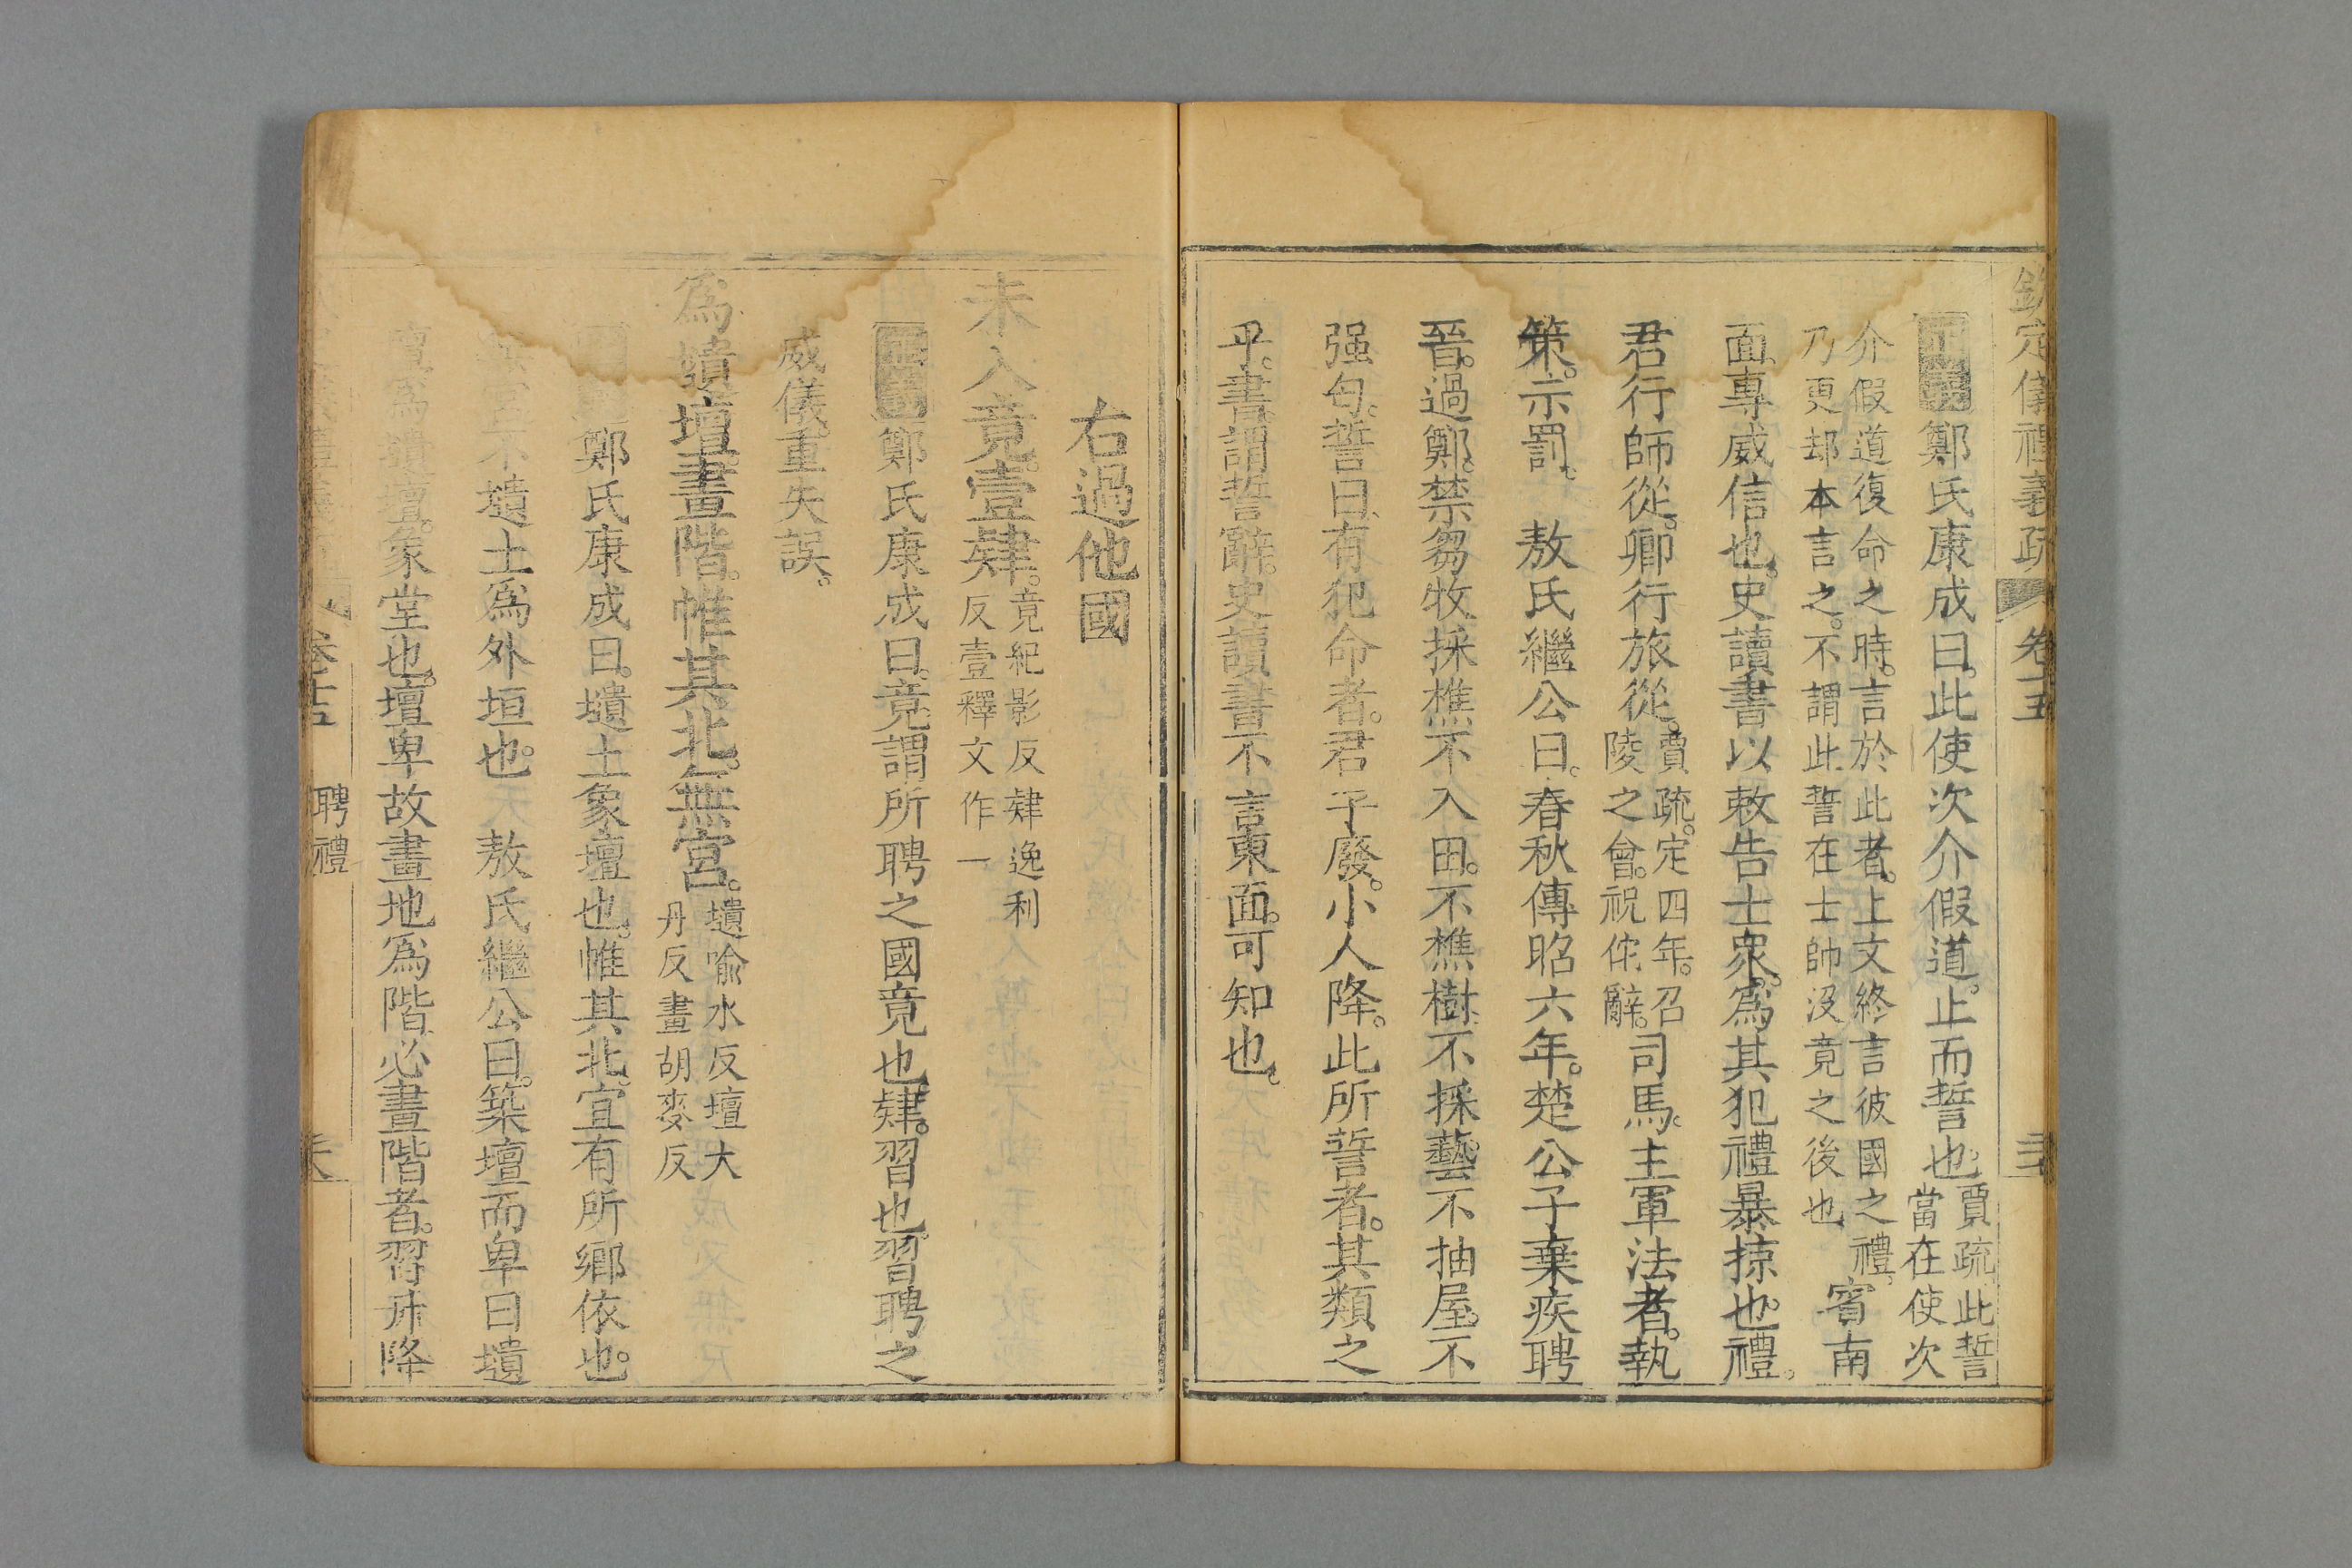 欽定儀禮義疏 卷十五
正義鄭氏康成曰。此使次介假道。止而誓也。賈疏此誓當在使次
介假道復命之時。言於此者。上文終言彼國之禮。乃更却本言之。不謂此誓在士帥沒竟之後也 賓南
面專威信也。史讀書以敕告士衆。爲其犯禮暴掠也。禮。
君行師從。卿行旅從。賈疏。定四年。召陵之會。祝佗辭。司馬。主軍法者。執
策。示罰。 敖氏繼公曰。春秋傳昭六年。楚公子棄疾聘
晉。過鄭。禁芻牧採樵不入田。不樵樹。不採蓺。不抽屋。不
强匄。誓曰。有犯命者。君子廢。小人降。此所誓者。其類之
乎。書。謂誓辭。史讀書不言東面。可知也。
右過他國
未入竟。壹肄。竟紀影反肄逸利反壹釋文作一
正義鄭氏康成曰。竟。謂所聘之國竟也。肄。習也。習聘之
威儀。重失誤。
爲壝壇。畫階。帷其北。無宮。壝喻水反壇大丹反畫胡麥反
鄭氏康成曰。壝土象壇也。帷其北。宜有所鄉依也。
不壝土爲外垣也。 敖氏繼公曰。築壇而卑曰壝
壇爲壝壇。象堂也。壇卑故畫地爲階。必畫階者。習升降
卷十五 聘禮